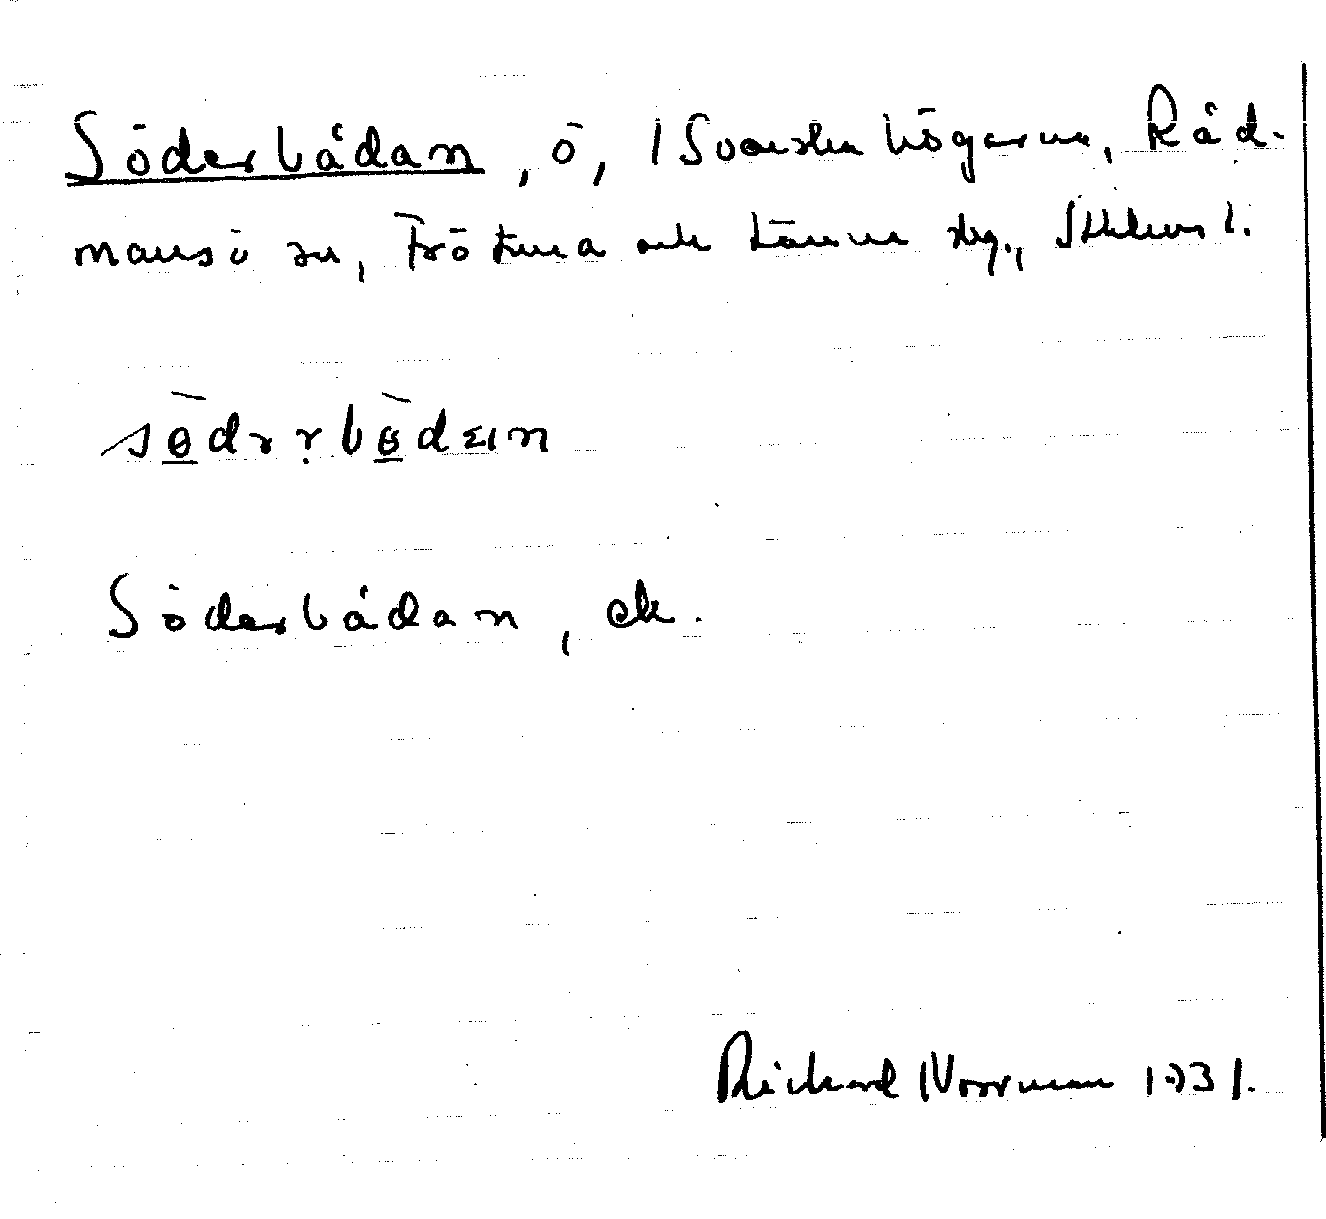 Söderbådan, ö, i Svenska högarna, Råd-
mansö sn, Frötuna och Länna skg., Sthlms l.
Söderbådan, ek.
Rickard Norrman 1931.